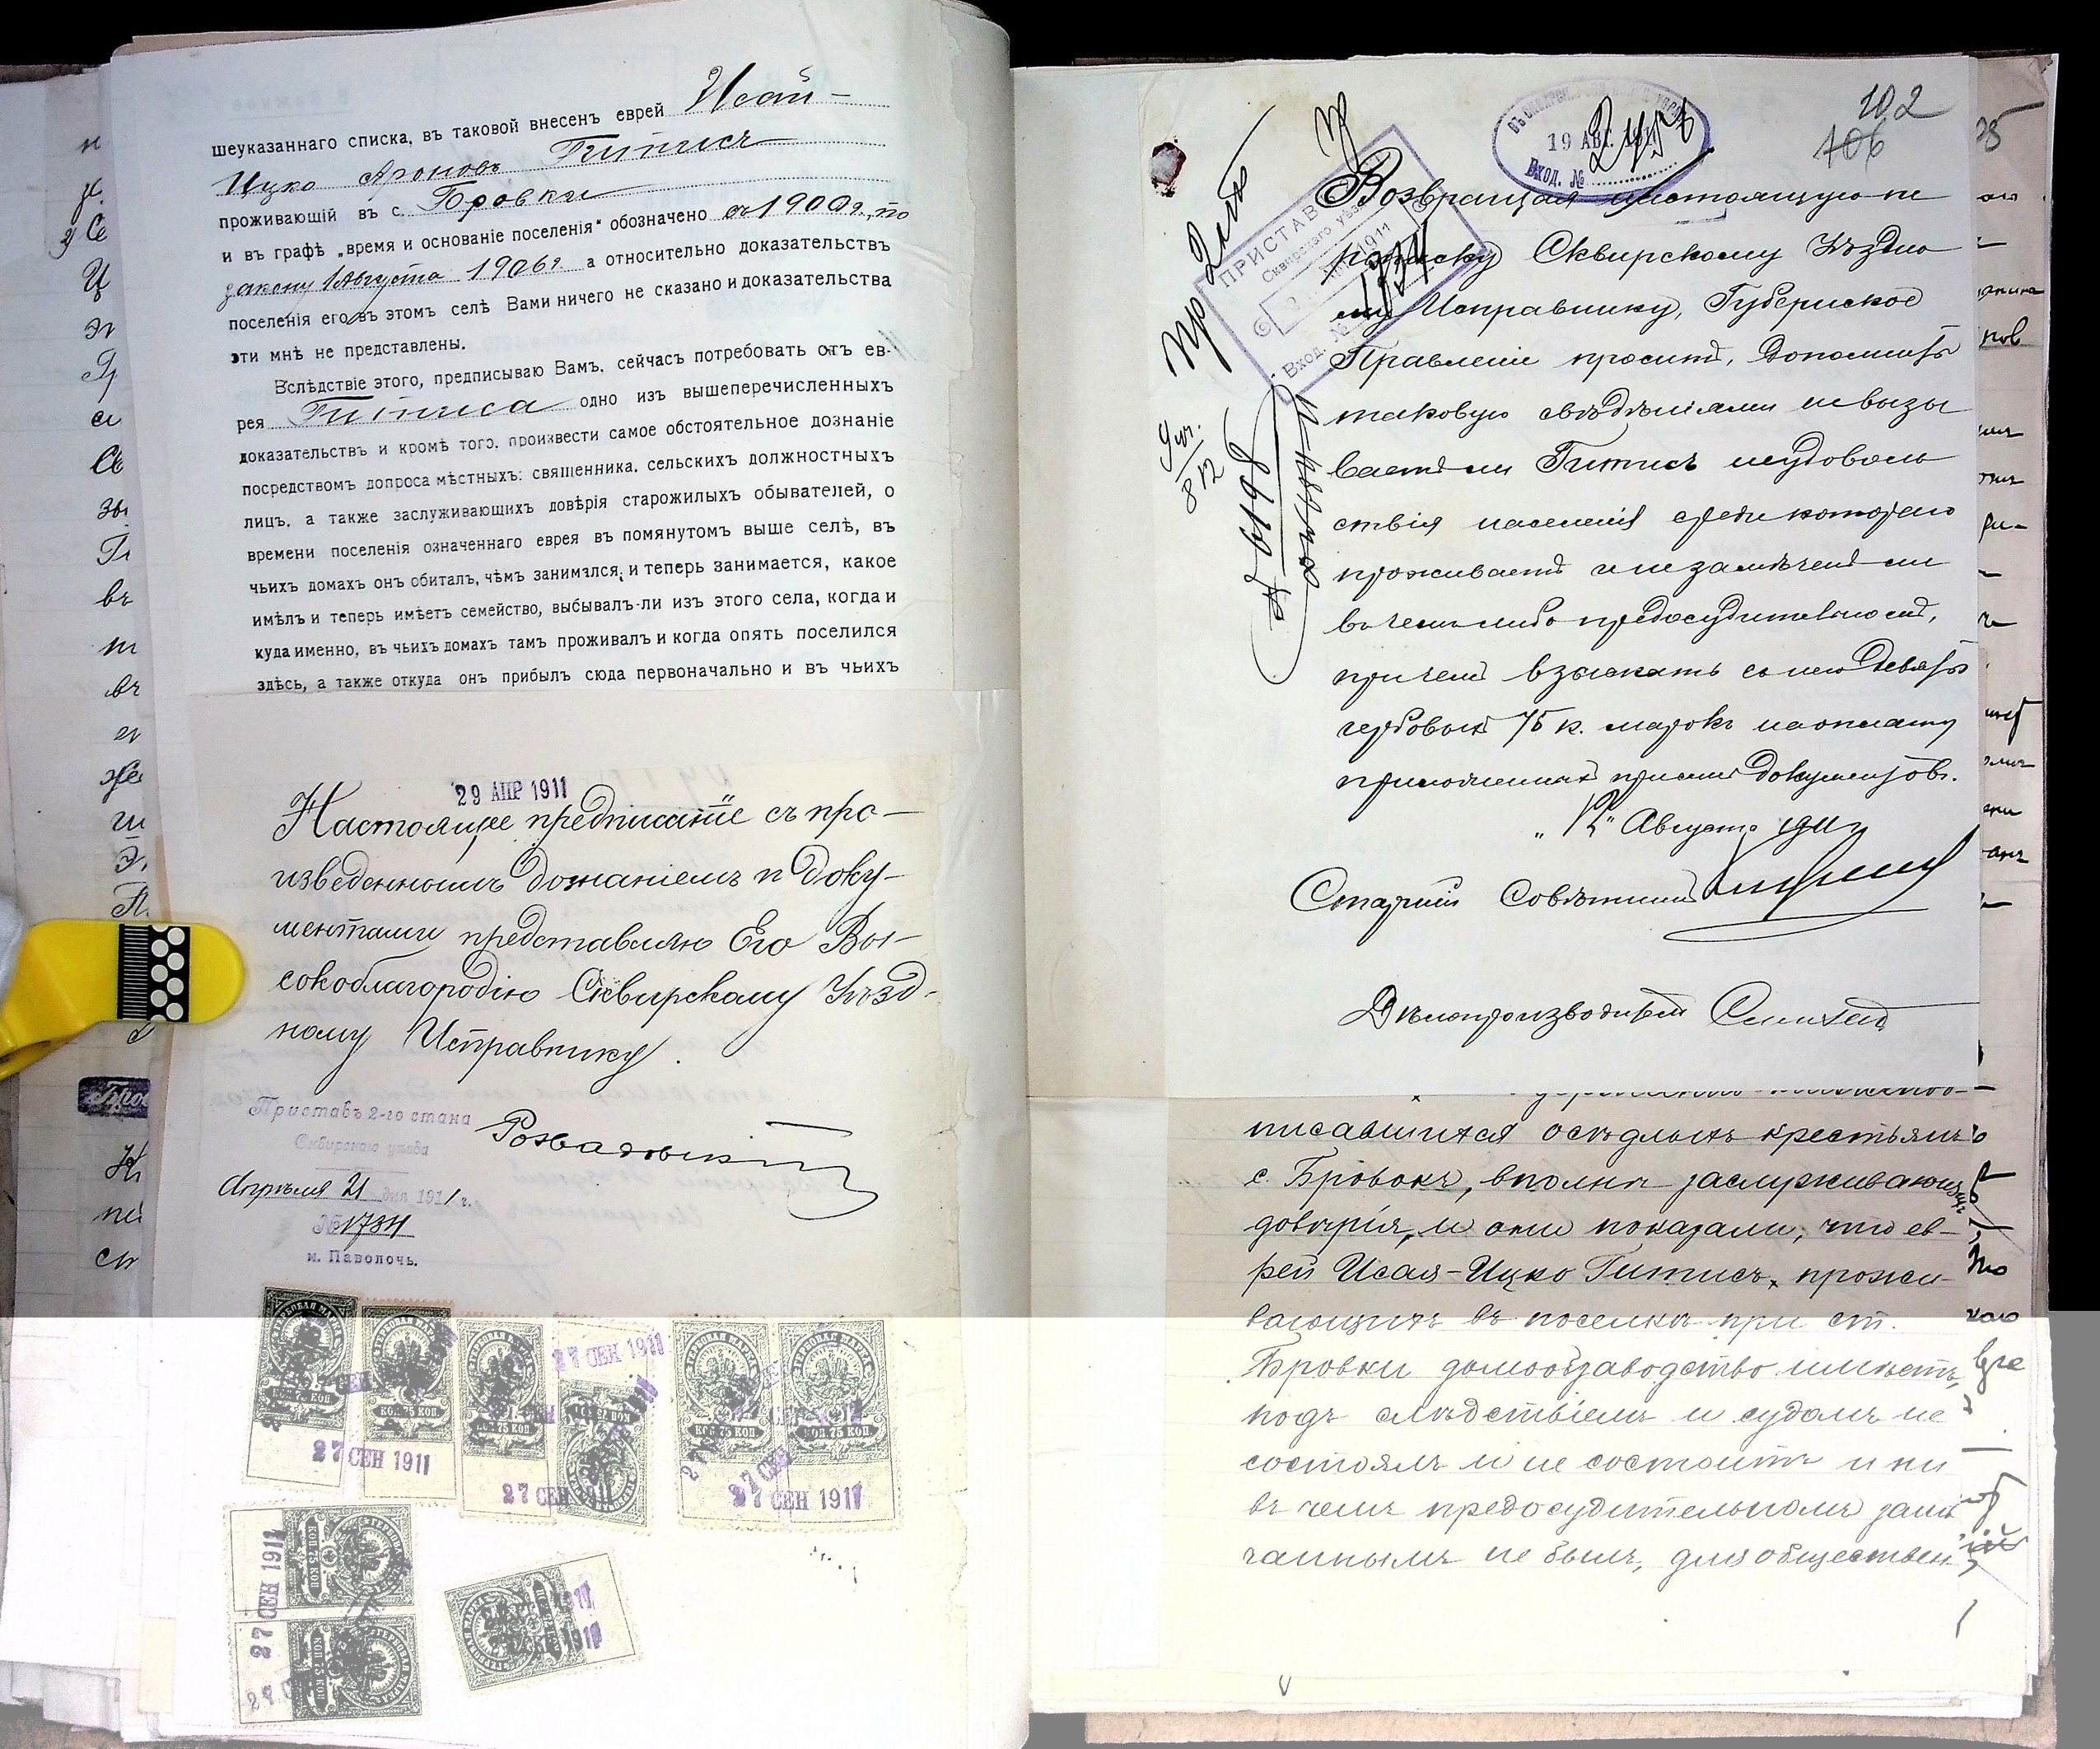 шеуказаннаго списка, въ таковой внесенъ еврей Исай-
Ицко Ароновъ Гитисъ
проживающій въ с. Бровки
и въ графѣ „время и основаніе поселенія“ обозначено съ 1900 г. по
закону 1 Августа 1906 г. а относительно доказательствъ
поселенія его въ этомъ селѣ Вами ничего не сказано и доказательства
эти мнѣ не представлены.
Вслѣдствіе этого, предписываю Вамъ, сейчасъ потребовать отъ ев-
рея Гитиса одно изъ вышеперечисленныхъ
доказательствъ и кромѣ того, произвести самое обстоятельное дознаніе
посредствомъ допроса мѣстныхъ: священника, сельскихъ должностныхъ
лицъ, а также заслуживающихъ довѣрія старожилыхъ обывателей, о
времени поселенія означеннаго еврея въ помянутомъ выше селѣ, въ
чьихъ домахъ онъ обиталъ, чѣмъ занимался, и теперь занимается, какое
имѣлъ и теперь имѣетъ семейство, выбывалъ-ли изъ этого села, когда и
куда именно, въ чьихъ домахъ тамъ проживалъ и когда опять поселился
здѣсь, а также откуда онъ прибылъ сюда первоначально и въ чьихъ
29 АПР 1911
Настоящее предписаніе съ про-
изведеннымъ дознаніемъ и доку-
ментами представляю Его Вы-
сокоблагородію Сквирскому Уѣзд-
ному Исправнику.
Приставъ 2-го стана
Сквирскаго уѣзда
Апрѣля 21 дня 1911 г.
№ 1734
м. Паволочь.
ГЕРБОВАЯ МАРКА
КОП. 75 КОП.
27 СЕН 1911
27 СЕН 1911
27 СЕН 1911
27 СЕН 1911
27 СЕН 1911
27 СЕН 1911
102
106
19 АВГ. 1911
Вход. №
ПРИСТАВ
Сквирскаго уѣзда
Вход. №
Возвращая настоящую пе
реписку Сквирскому Уѣздно
му Исправнику, Губернское
Правленіе проситъ, дополнить
таковую свѣдѣніями не вызы
ваетъ ли Гитисъ неудоволь
ствія населенія среди котораго
проживаетъ и не замѣченъ ли
въ чемъ либо предосудительномъ,
причемъ взыскать съ него девять
гербовыхъ 75 к. марокъ на оплату
приложенныхъ при семъ документовъ.
„12“ Августа 1911 г.
Старшій Совѣтникъ
Дѣлопроизводитель
писавшихся осѣдлыхъ крестьянъ
с. Бровокъ, вполнѣ заслуживающихъ
довѣрія, и они показали, что ев-
рей Исая-Ицко Гитисъ, прожи-
вающихъ въ поселкѣ при ст.
Бровки домообзаводство имѣетъ,
подъ слѣдствіемъ и судомъ не
состоялъ и не состоитъ и ни
въ чемъ предосудительномъ замѣ
чаннымъ не былъ, для обществен-